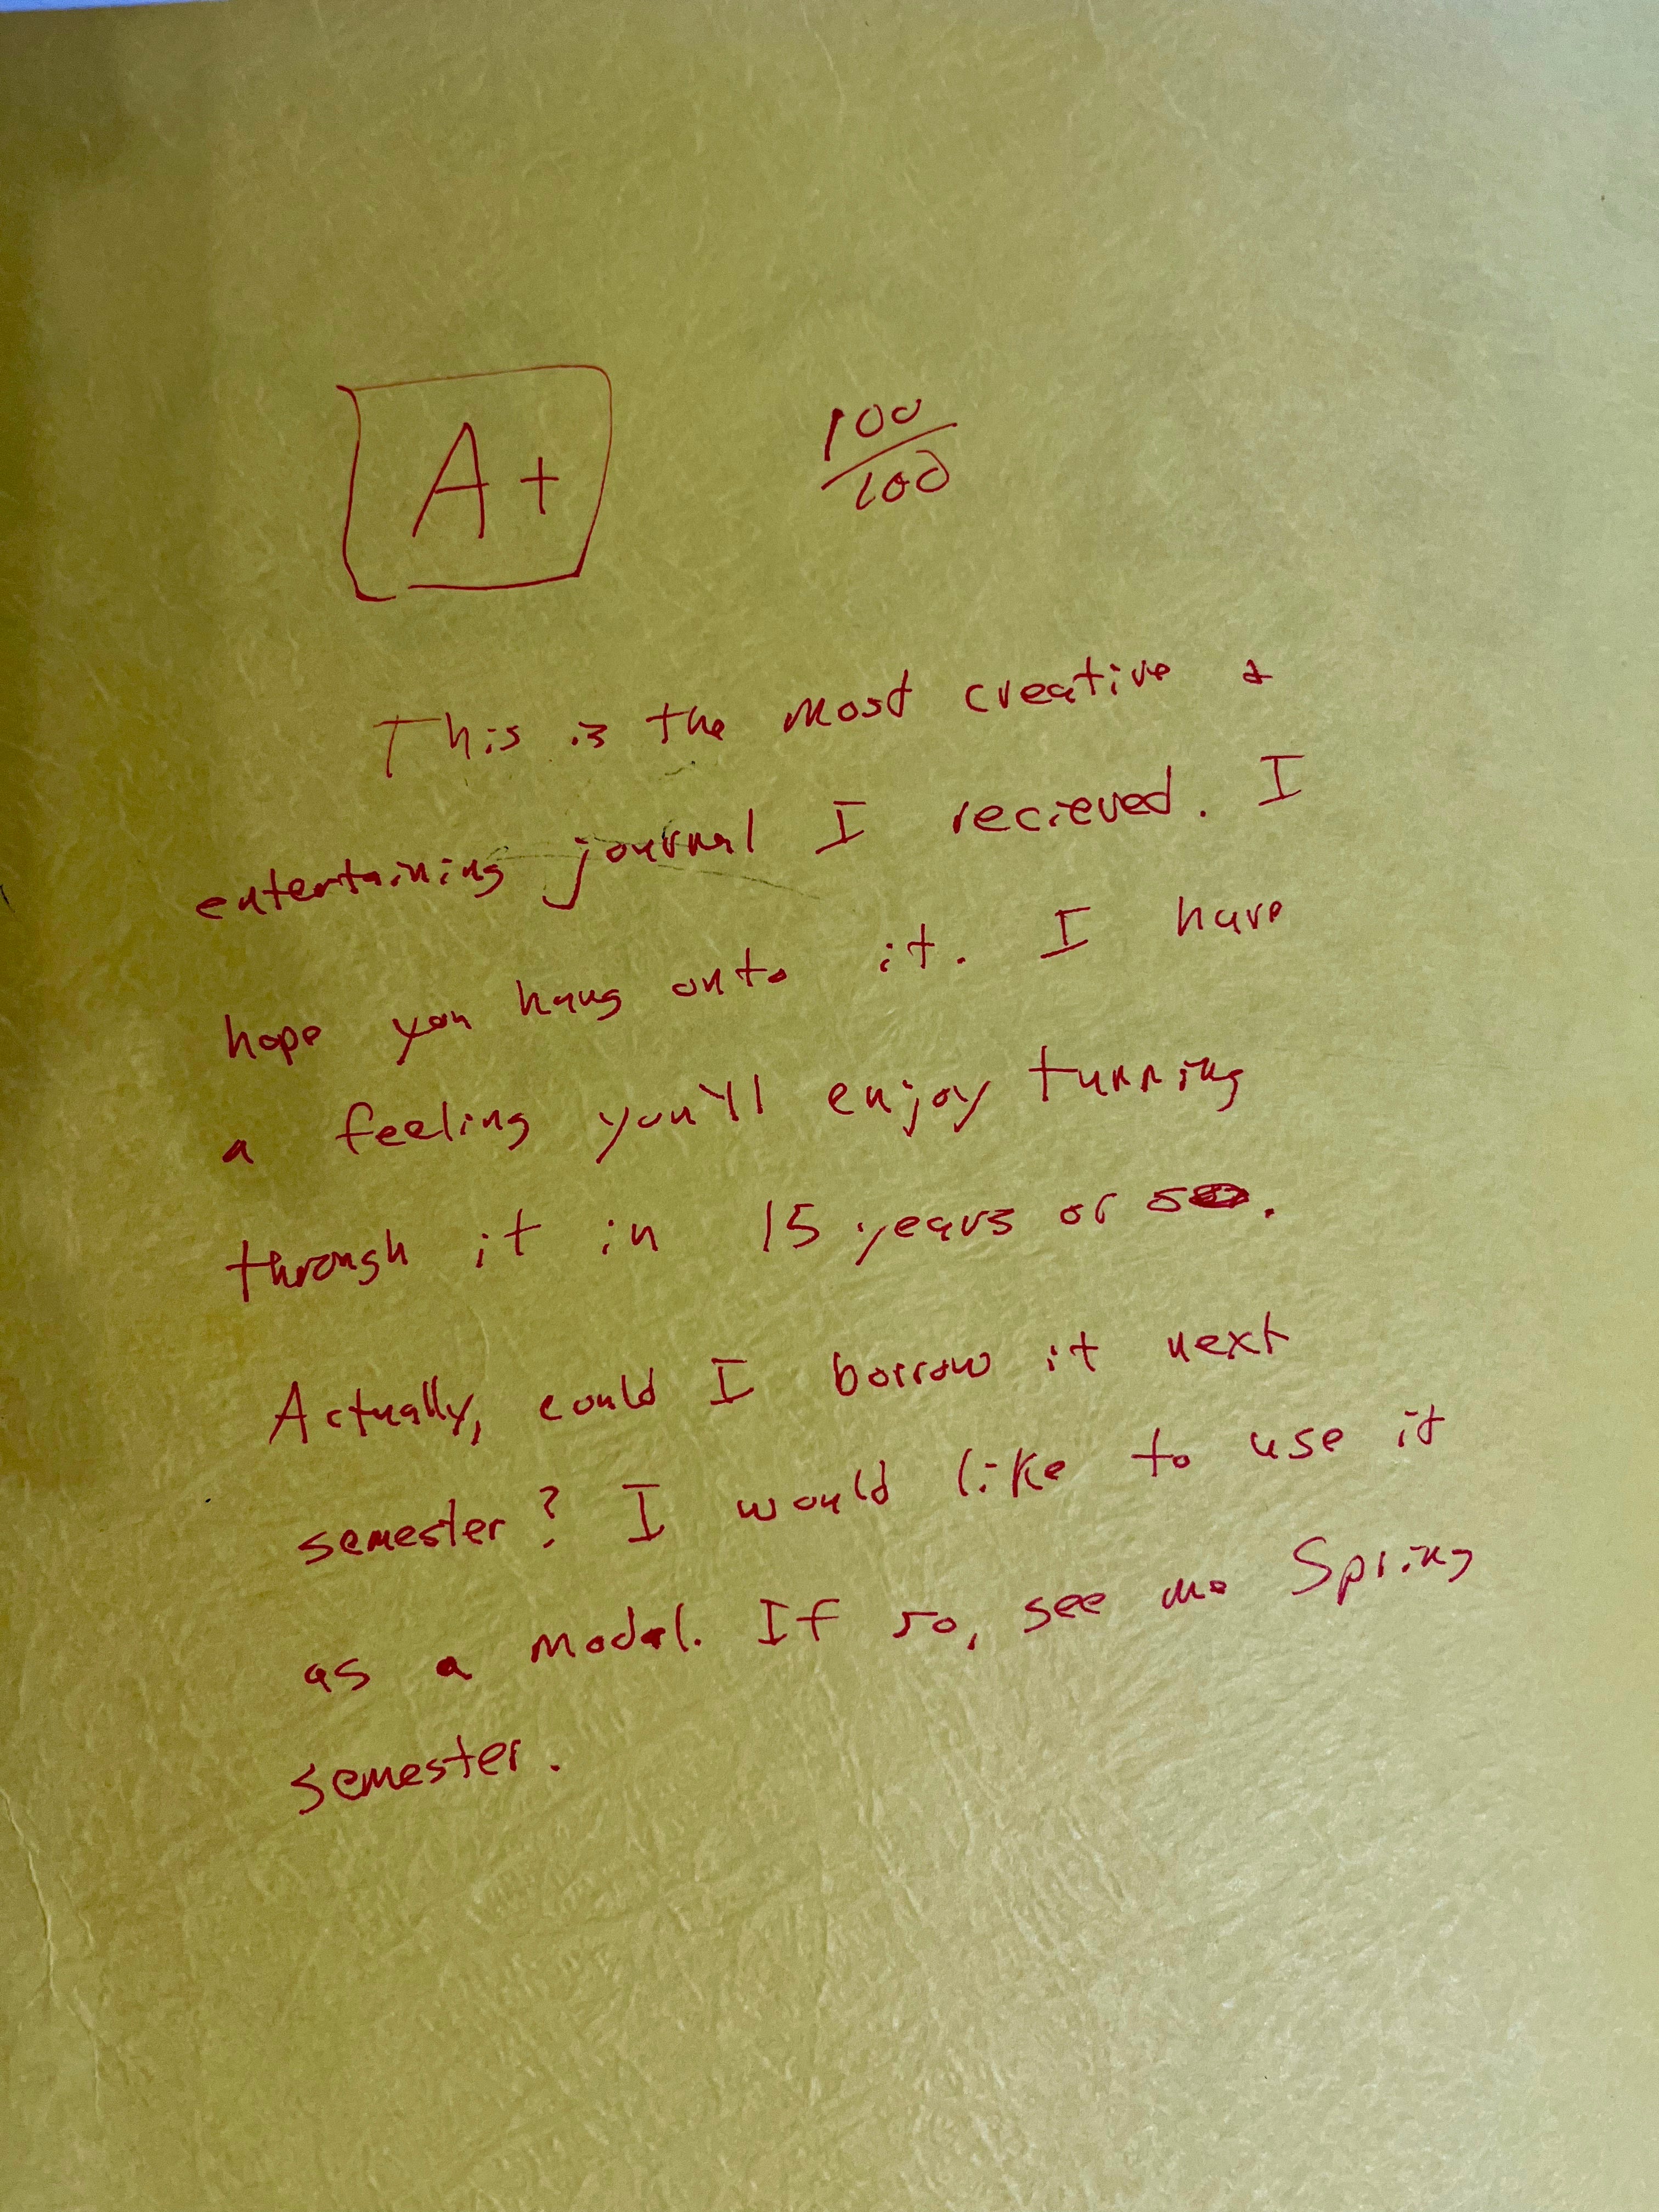 A+ 100/100
This is the most creative &
entertaining journal I recieved. I
hope you hang onto it. I have
a feeling you'll enjoy turning
through it in 15 years or so.
Actually, could I borrow it next
semester? I would like to use it
as a model. If so, see me Spring
semester.